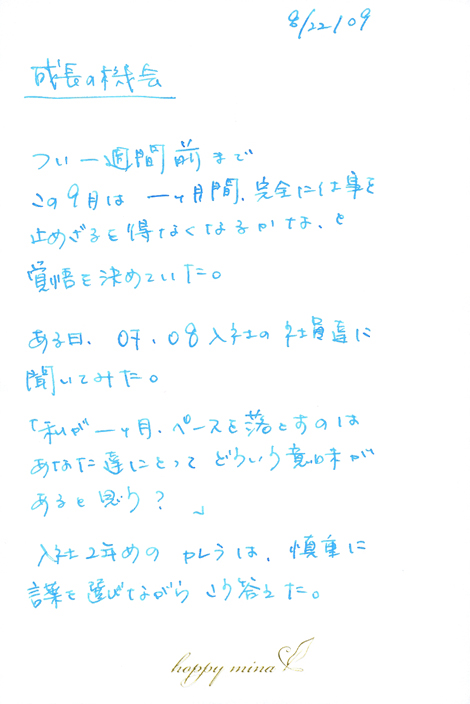 8/22/09
成長の機会
つい一週間前まで
この9月は 一ヶ月間、完全に仕事を
止めざるを得なくなるかな、と
覚悟を決めていた。
ある日、07、08入社の社員達に
聞いてみた。
「私が一ヶ月、ペースを落とすのは
あなた達にとって どういう意味が
あると思う？」
入社2年めの カレラは、慎重に
言葉を選びながら こう答えた。
happy mina